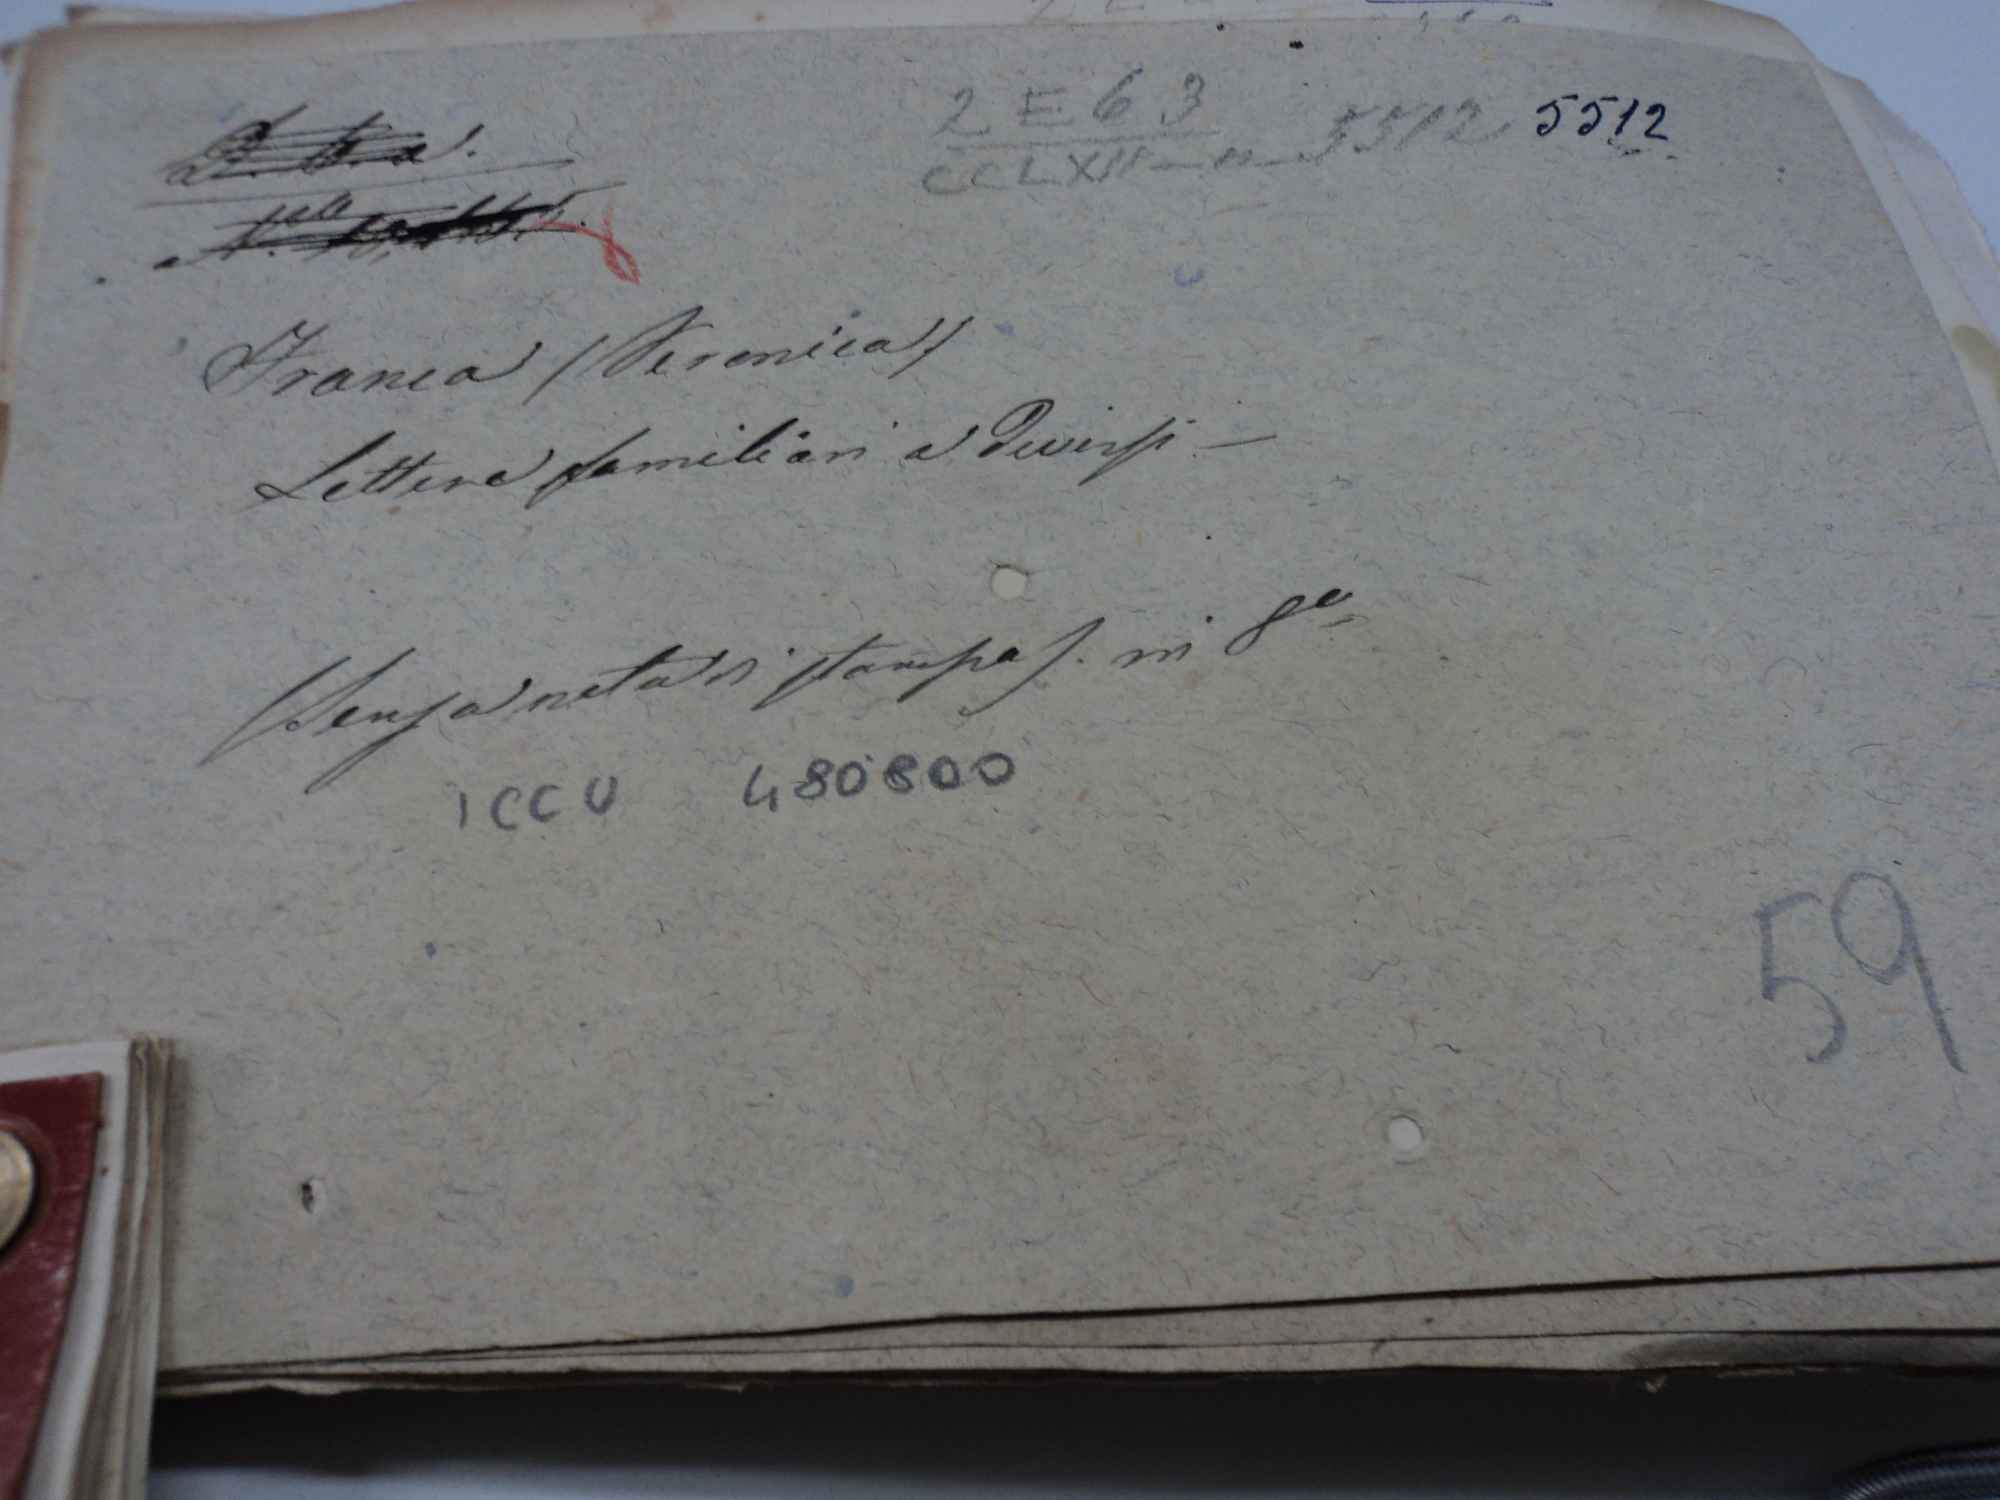 2 E 6 3
5512 5512
Franca (Veronica)
Lettere familiari a Diversi —
(Senza nota di stampa). in 8º
ICCU 480800
59